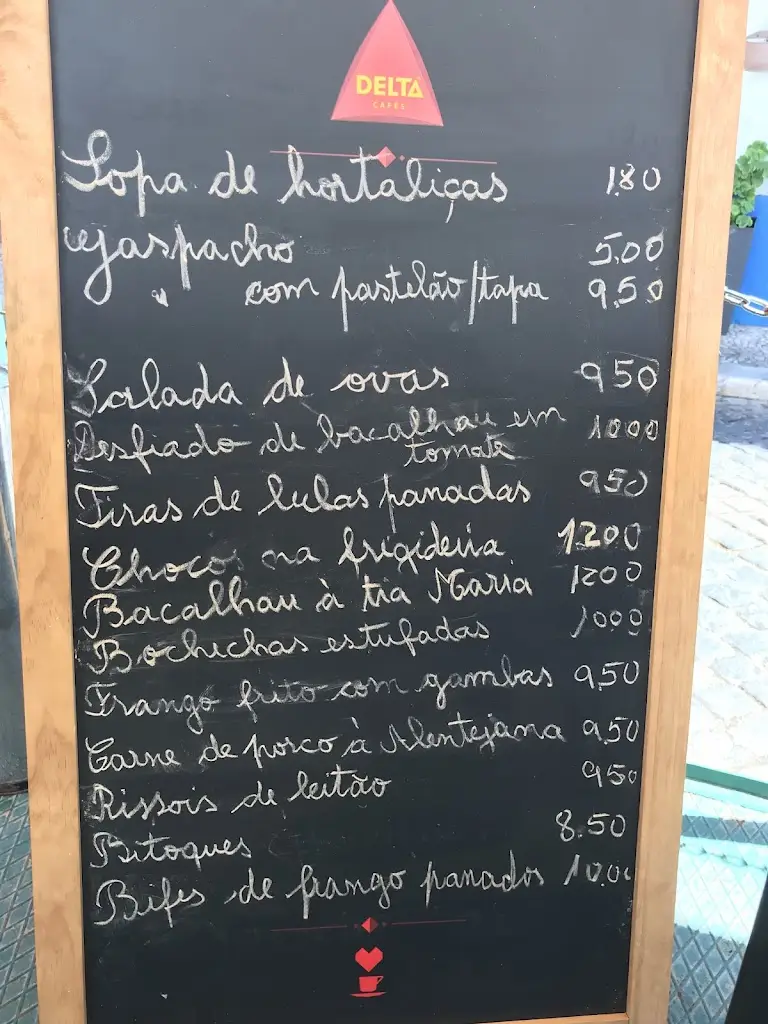 DELTA
CAFÉS
Sopa de hortaliças 1.80
Gaspacho 5.00
" com pastelão/tapa 9.50
Salada de ovas 950
Desfiado de bacalhau em 1000
tomate
Tiras de lulas panadas 950
Choco na frigideria 1200
Bacalhau à tia Maria 1200
Bochechas estufadas 1000
Frango frito com gambas 9.50
Carne de porco à Alentejana 9.50
Rissois de leitão 950
Bitoques 8.50
Bifes de frango panados 10.00